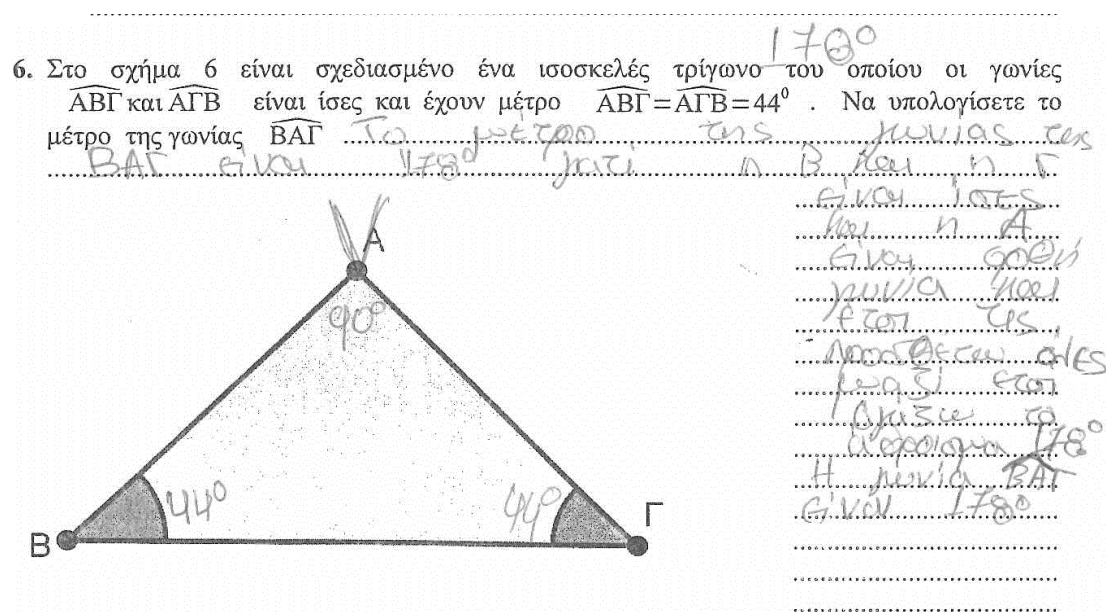 178⁰
6. Στο σχήμα 6 είναι σχεδιασμένο ένα ισοσκελές τρίγωνο του οποίου οι γωνίες
ΑΒΓ και ΑΓΒ είναι ίσες και έχουν μέτρο ΑΒΓ=ΑΓΒ=44⁰ . Να υπολογίσετε το
μέτρο της γωνίας ΒΑΓ Το μέτρο της γωνίας της
ΒΑΓ είναι 178⁰ γιατί η Β και η Γ
είναι ίσες
και η Α
είναι ορθή
γωνία και
έτσι τις
προσθέτω όλες
μαζί έτσι
βγάζω το
άθροισμα 178⁰
Η γωνία ΒΑΓ
είναι 178⁰
Α
90⁰
44⁰ 44⁰
Β Γ